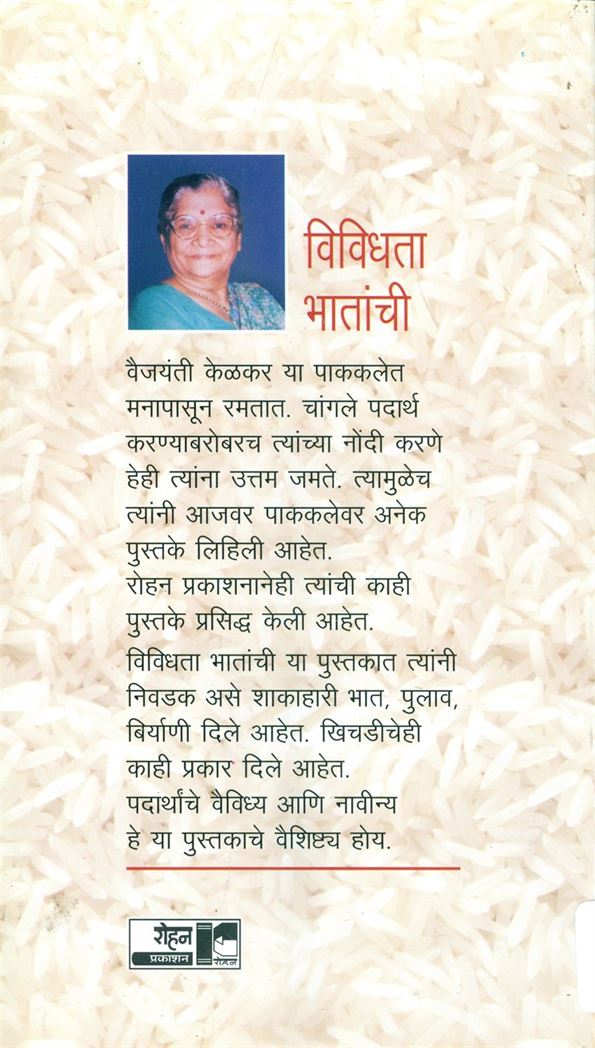 विविधता
भातांची
वैजयंती केळकर या पाककलेत
मनापासून रमतात. चांगले पदार्थ
करण्याबरोबरच त्यांच्या नोंदी करणे
हेही त्यांना उत्तम जमते. त्यामुळेच
त्यांनी आजवर पाककलेवर अनेक
पुस्तके लिहिली आहेत.
रोहन प्रकाशनानेही त्यांची काही
पुस्तके प्रसिद्ध केली आहेत.
विविधता भातांची या पुस्तकात त्यांनी
निवडक असे शाकाहारी भात, पुलाव,
बिर्याणी दिले आहेत. खिचडीचेही
काही प्रकार दिले आहेत.
पदार्थांचे वैविध्य आणि नावीन्य
हे या पुस्तकाचे वैशिष्ट्य होय.
रोहन
प्रकाशन
रोहन